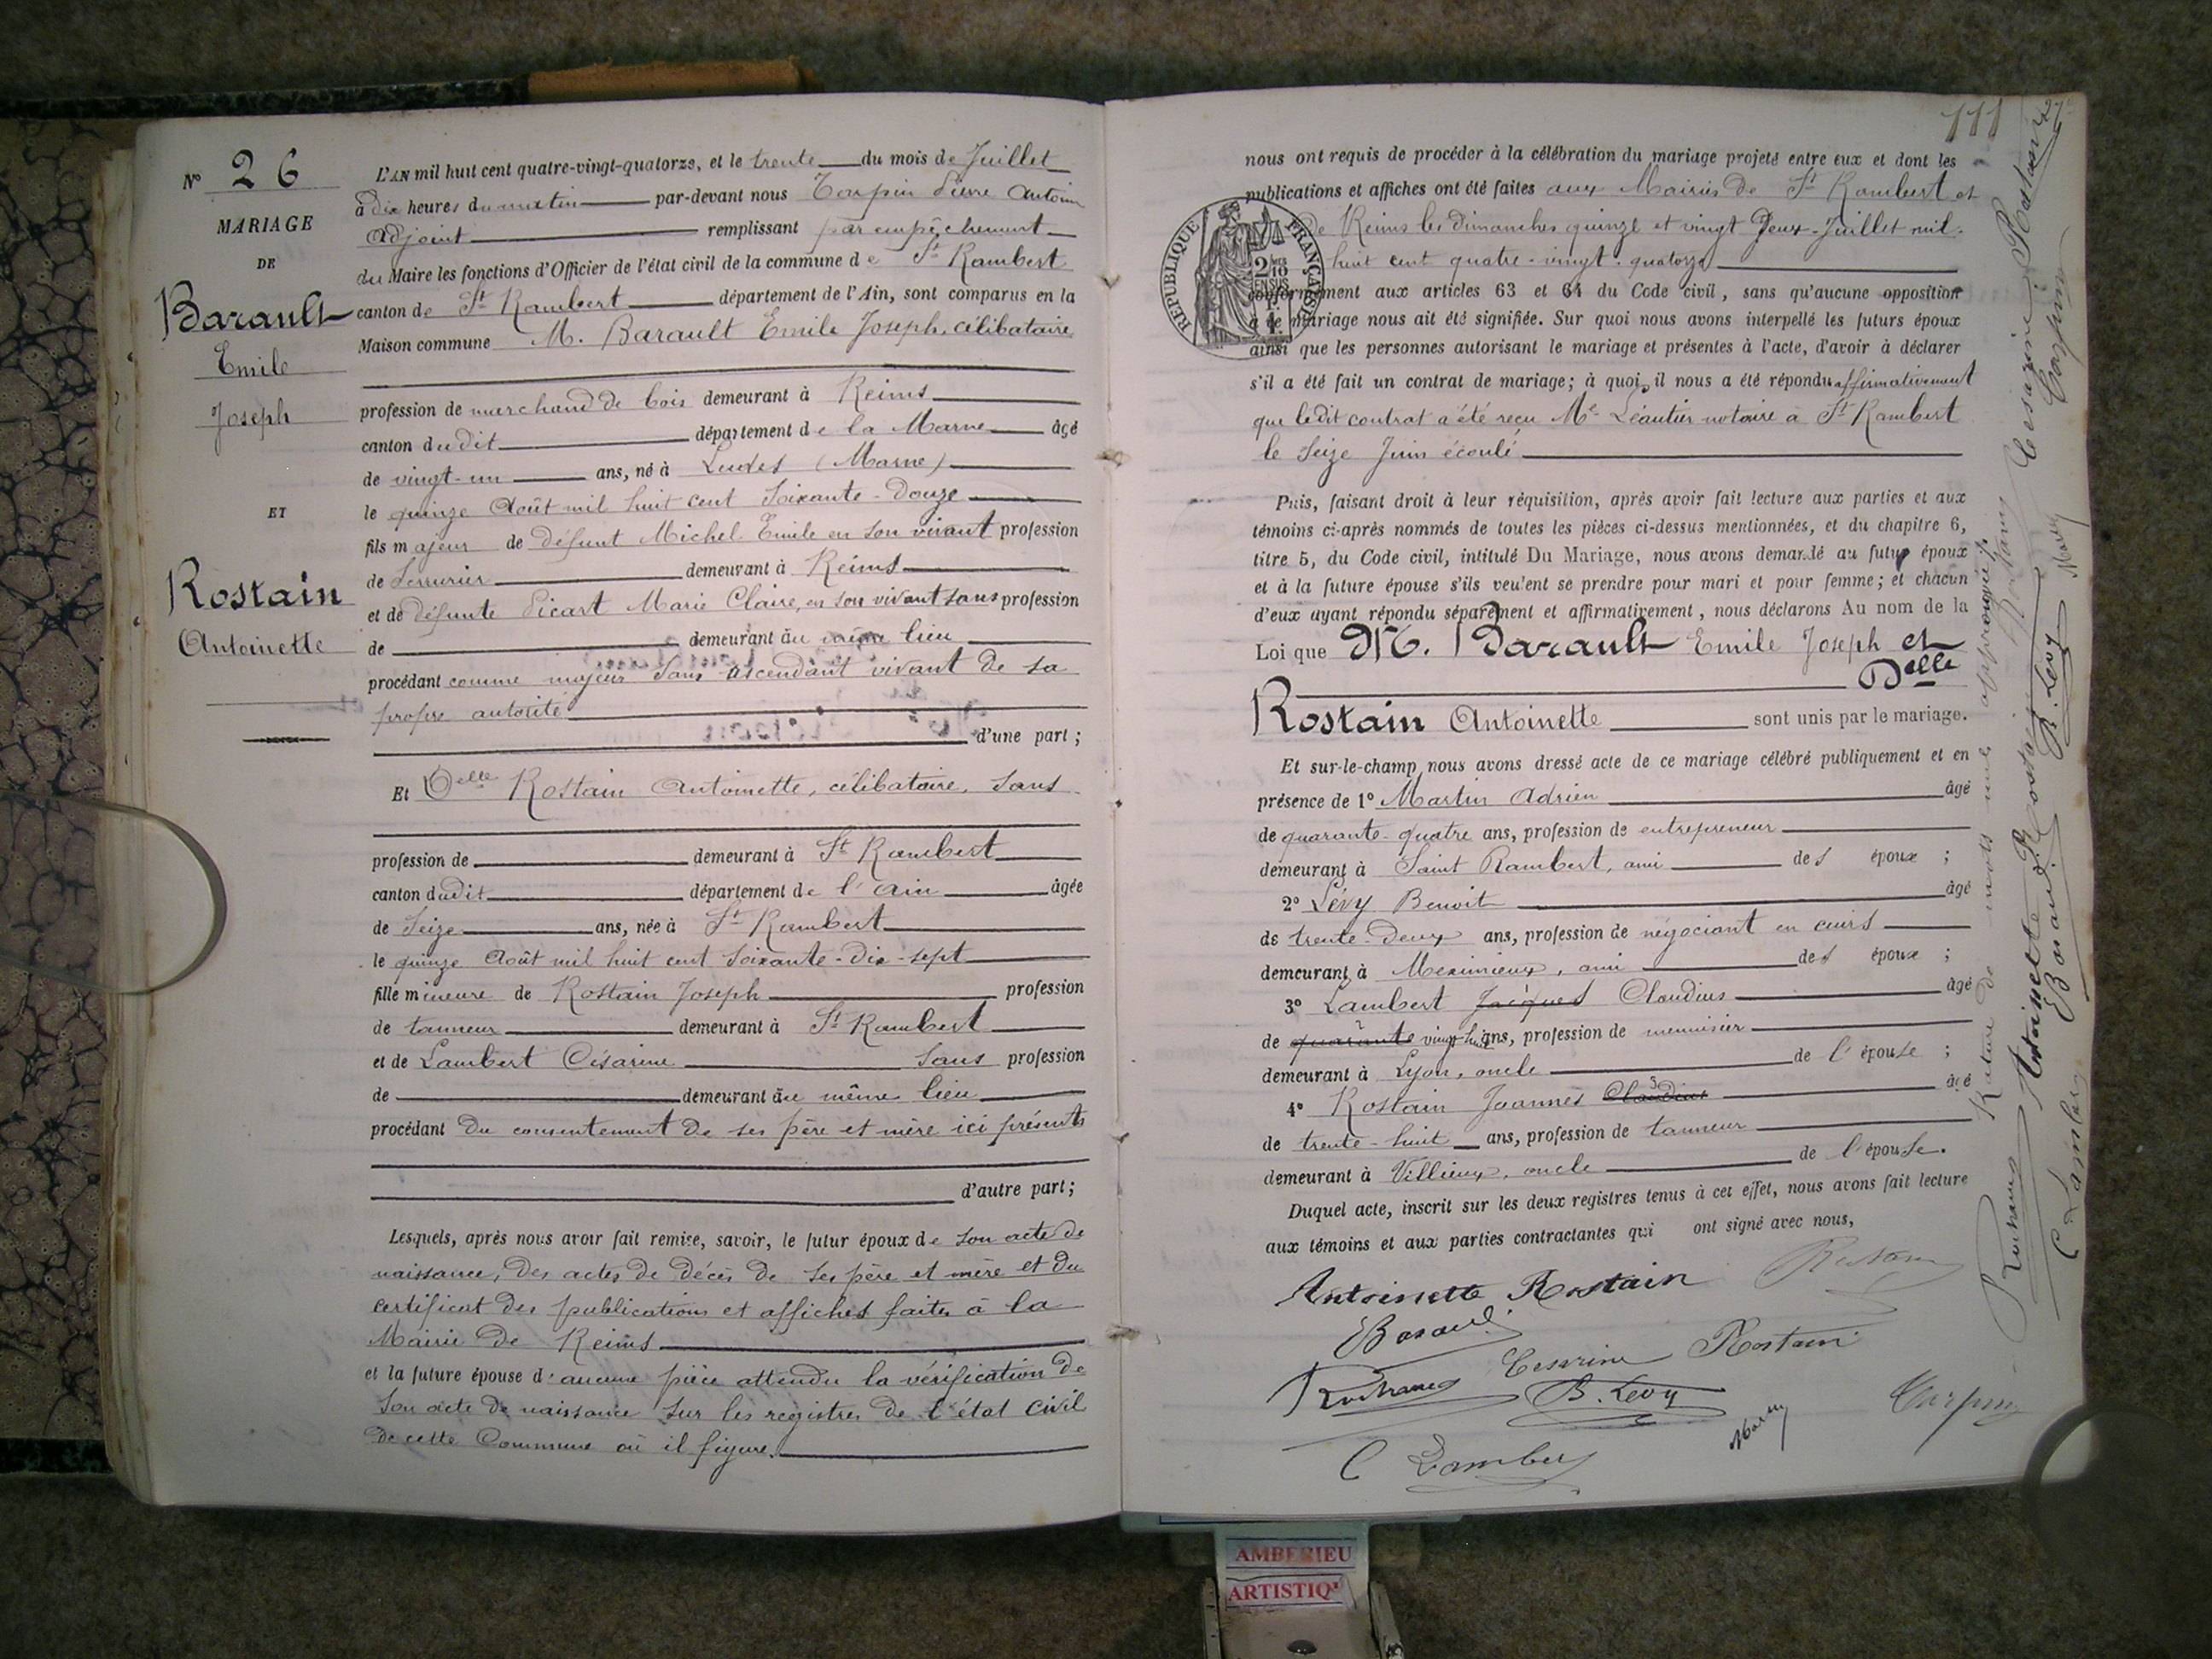 N° 26
MARIAGE
DE
Barault
Emile
Joseph
ET
Rostain
Antoinette
L'AN mil huit cent quatre-vingt-quatorze, et le trente du mois de Juillet
à dix heures du matin par-devant nous Carpin Pierre Antoine
Adjoint remplissant par empêchement
du Maire les fonctions d'Officier de l'état civil de la commune de St Rambert
canton de St Rambert département de l'Ain, sont comparus en la
Maison commune M. Barault Emile Joseph, célibataire
profession de marchand de bois demeurant à Reims
canton dudit département de la Marne âgé
de vingt-un ans, né à Ludes (Marne)
le quinze Août mil huit cent soixante-douze
fils majeur de défunt Michel Emile en son vivant profession
de Serrurier demeurant à Reims
et de défunte Picart Marie Claire, en son vivant sans profession
de demeurant au même lieu
procédant comme majeur sans ascendant vivant de sa
propre autorité
d'une part ;
Et Delle Rostain Antoinette, célibataire, sans
profession de demeurant à St Rambert
canton dudit département de l'Ain âgée
de Seize ans, née à St Rambert
le quinze Août mil huit cent soixante-dix-sept
fille mineure de Rostain Joseph profession
de tanneur demeurant à St Rambert
et de Lambert Césarine sans profession
de demeurant au même lieu
procédant du consentement de ses père et mère ici présents
d'autre part ;
Lesquels, après nous avoir fait remise, savoir, le futur époux de son acte de
naissance, des actes de décès de ses père et mère et du
certificat des publications et affiches faites à la
Mairie de Reims
et la future épouse d'aucune pièce attendu la vérification de
son acte de naissance sur les registres de l'état civil
de cette Commune où il figure.
111
27
nous ont requis de procéder à la célébration du mariage projeté entre eux et dont les
publications et affiches ont été faites aux Mairies de St Rambert et
de Reims les dimanches quinze et vingt deux Juillet mil
huit cent quatre-vingt-quatorze
RÉPUBLIQUE FRANÇAISE
conformément aux articles 63 et 64 du Code civil, sans qu'aucune opposition
à ce mariage nous ait été signifiée. Sur quoi nous avons interpellé les futurs époux
ainsi que les personnes autorisant le mariage et présentes à l'acte, d'avoir à déclarer
s'il a été fait un contrat de mariage ; à quoi il nous a été répondu affirmativement
que ledit contrat a été reçu Me Léautier notaire à St Rambert
le Seize Juin écoulé
Puis, faisant droit à leur réquisition, après avoir fait lecture aux parties et aux
témoins ci-après nommés de toutes les pièces ci-dessus mentionnées, et du chapitre 6,
titre 5, du Code civil, intitulé Du Mariage, nous avons demandé au futur époux
et à la future épouse s'ils veulent se prendre pour mari et pour femme ; et chacun
d'eux ayant répondu séparément et affirmativement, nous déclarons Au nom de la
Loi que M. Barault Emile Joseph et
Delle
Rostain Antoinette sont unis par le mariage.
Et sur-le-champ nous avons dressé acte de ce mariage célébré publiquement et en
présence de 1° Martin Adrien âgé
de quarante-quatre ans, profession de entrepreneur
demeurant à Saint Rambert, ami des époux ;
2° Lévy Benoit âgé
de trente-deux ans, profession de négociant en cuirs
demeurant à Meximieux, ami des époux ;
3° Lambert Jacques Claudius âgé
de quarante vingt-huit ans, profession de menuisier
demeurant à Lyon, oncle de l'épouse ;
4° Rostain Joannès Claudius âgé
de trente-huit ans, profession de tanneur
demeurant à Villieux, oncle de l'épouse.
Duquel acte, inscrit sur les deux registres tenus à cet effet, nous avons fait lecture
aux témoins et aux parties contractantes qui ont signé avec nous,
Antoinette Rostain Rostain
E Barault
Césarine Rostain
B. Lévy
Martin
Carpin
C Lambert
Rature de mots nuls approuvés.
Rostain Césarine Rostain
Antoinette Rostain
E Barault B. Lévy Martin Carpin
C Lambert
AMBERIEU
ARTISTIQ